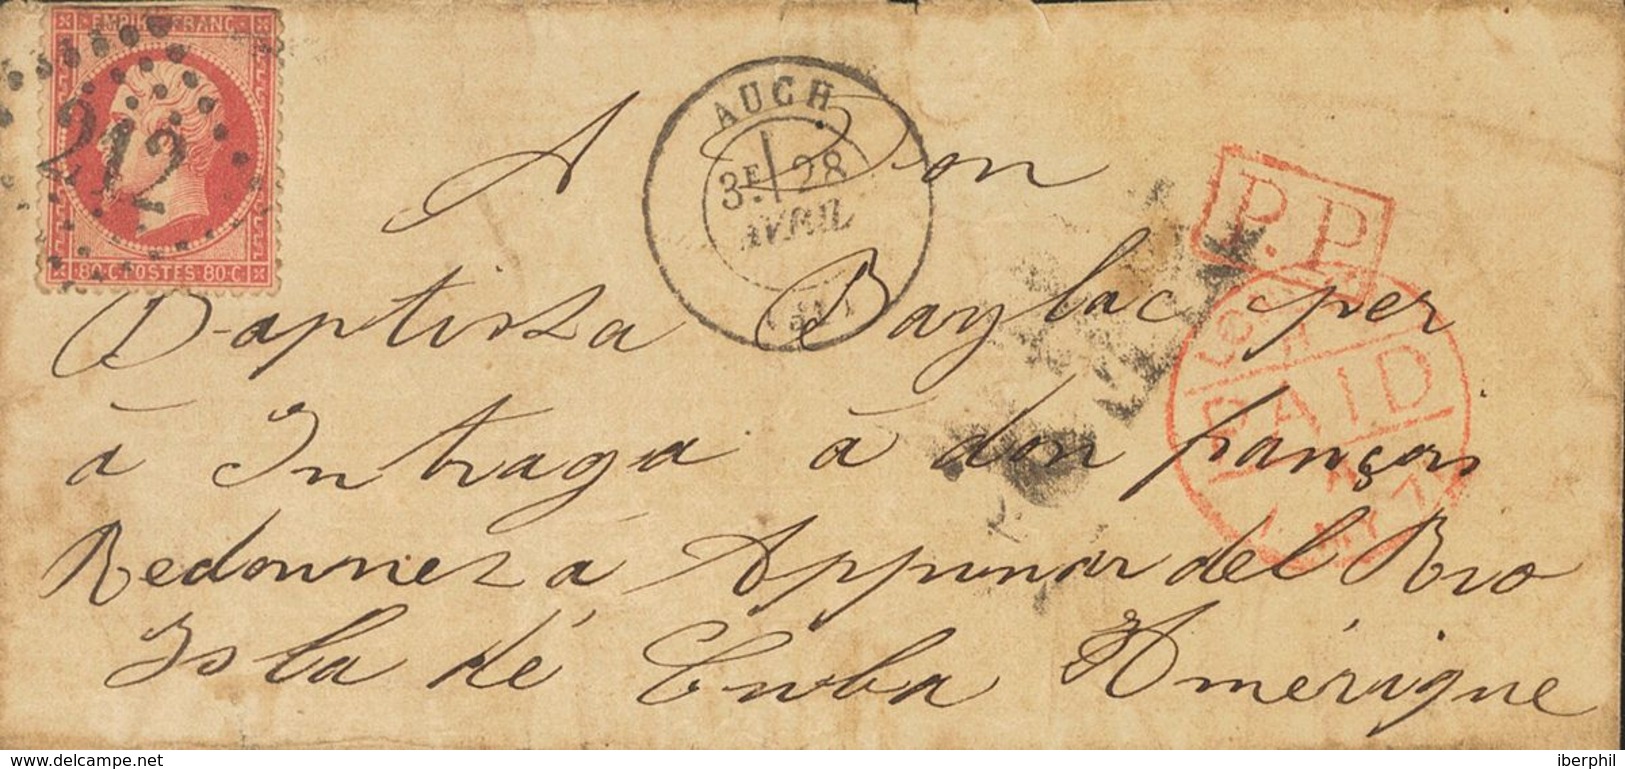 EMPIRE FRANC
212
80·C POSTES 80·C
AUCH
3E 28
AVRIL
(31)
P.P.
A Don
Baptista Baylac per
à Intraga à don françois
Redonnez à Appunar del Rio
Isla dé Cuba Amérique
LON
PAID
MY 7
www.delcampe.net
iberphil